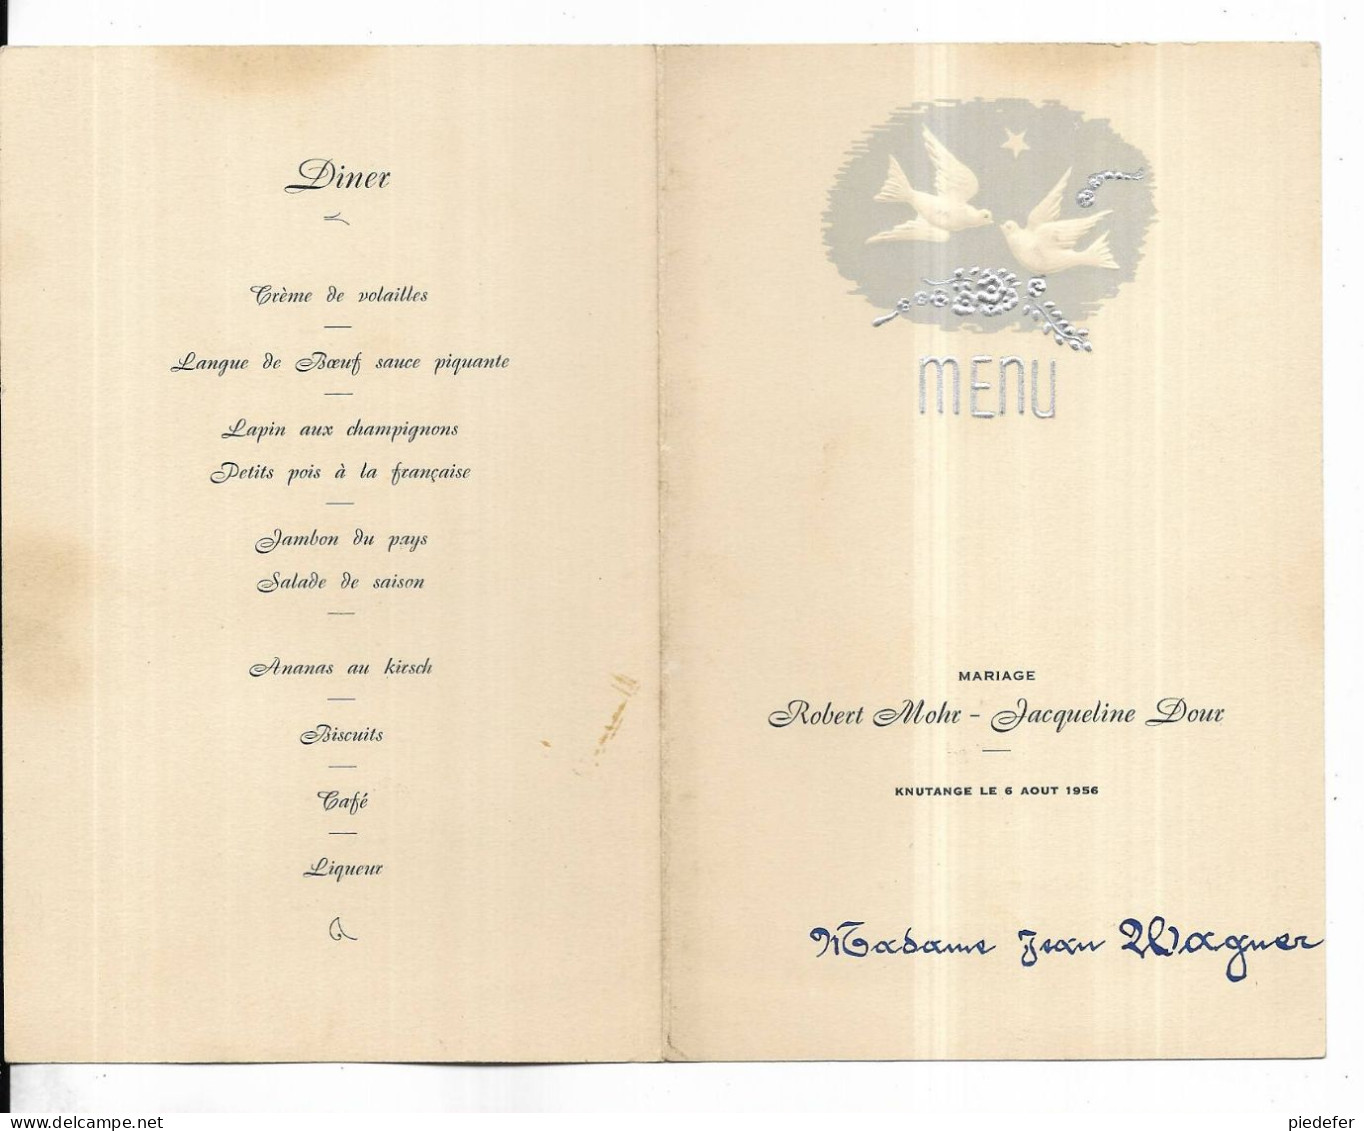 Diner
Crème de volailles
Langue de Bœuf sauce piquante
Lapin aux champignons
Petits pois à la française
Jambon du pays
Salade de saison
Ananas au kirsch
Biscuits
Café
Liqueur
MENU
MARIAGE
Robert Mohr - Jacqueline Dour
KNUTANGE LE 6 AOUT 1956
Madame Jean Wagner
piedefer